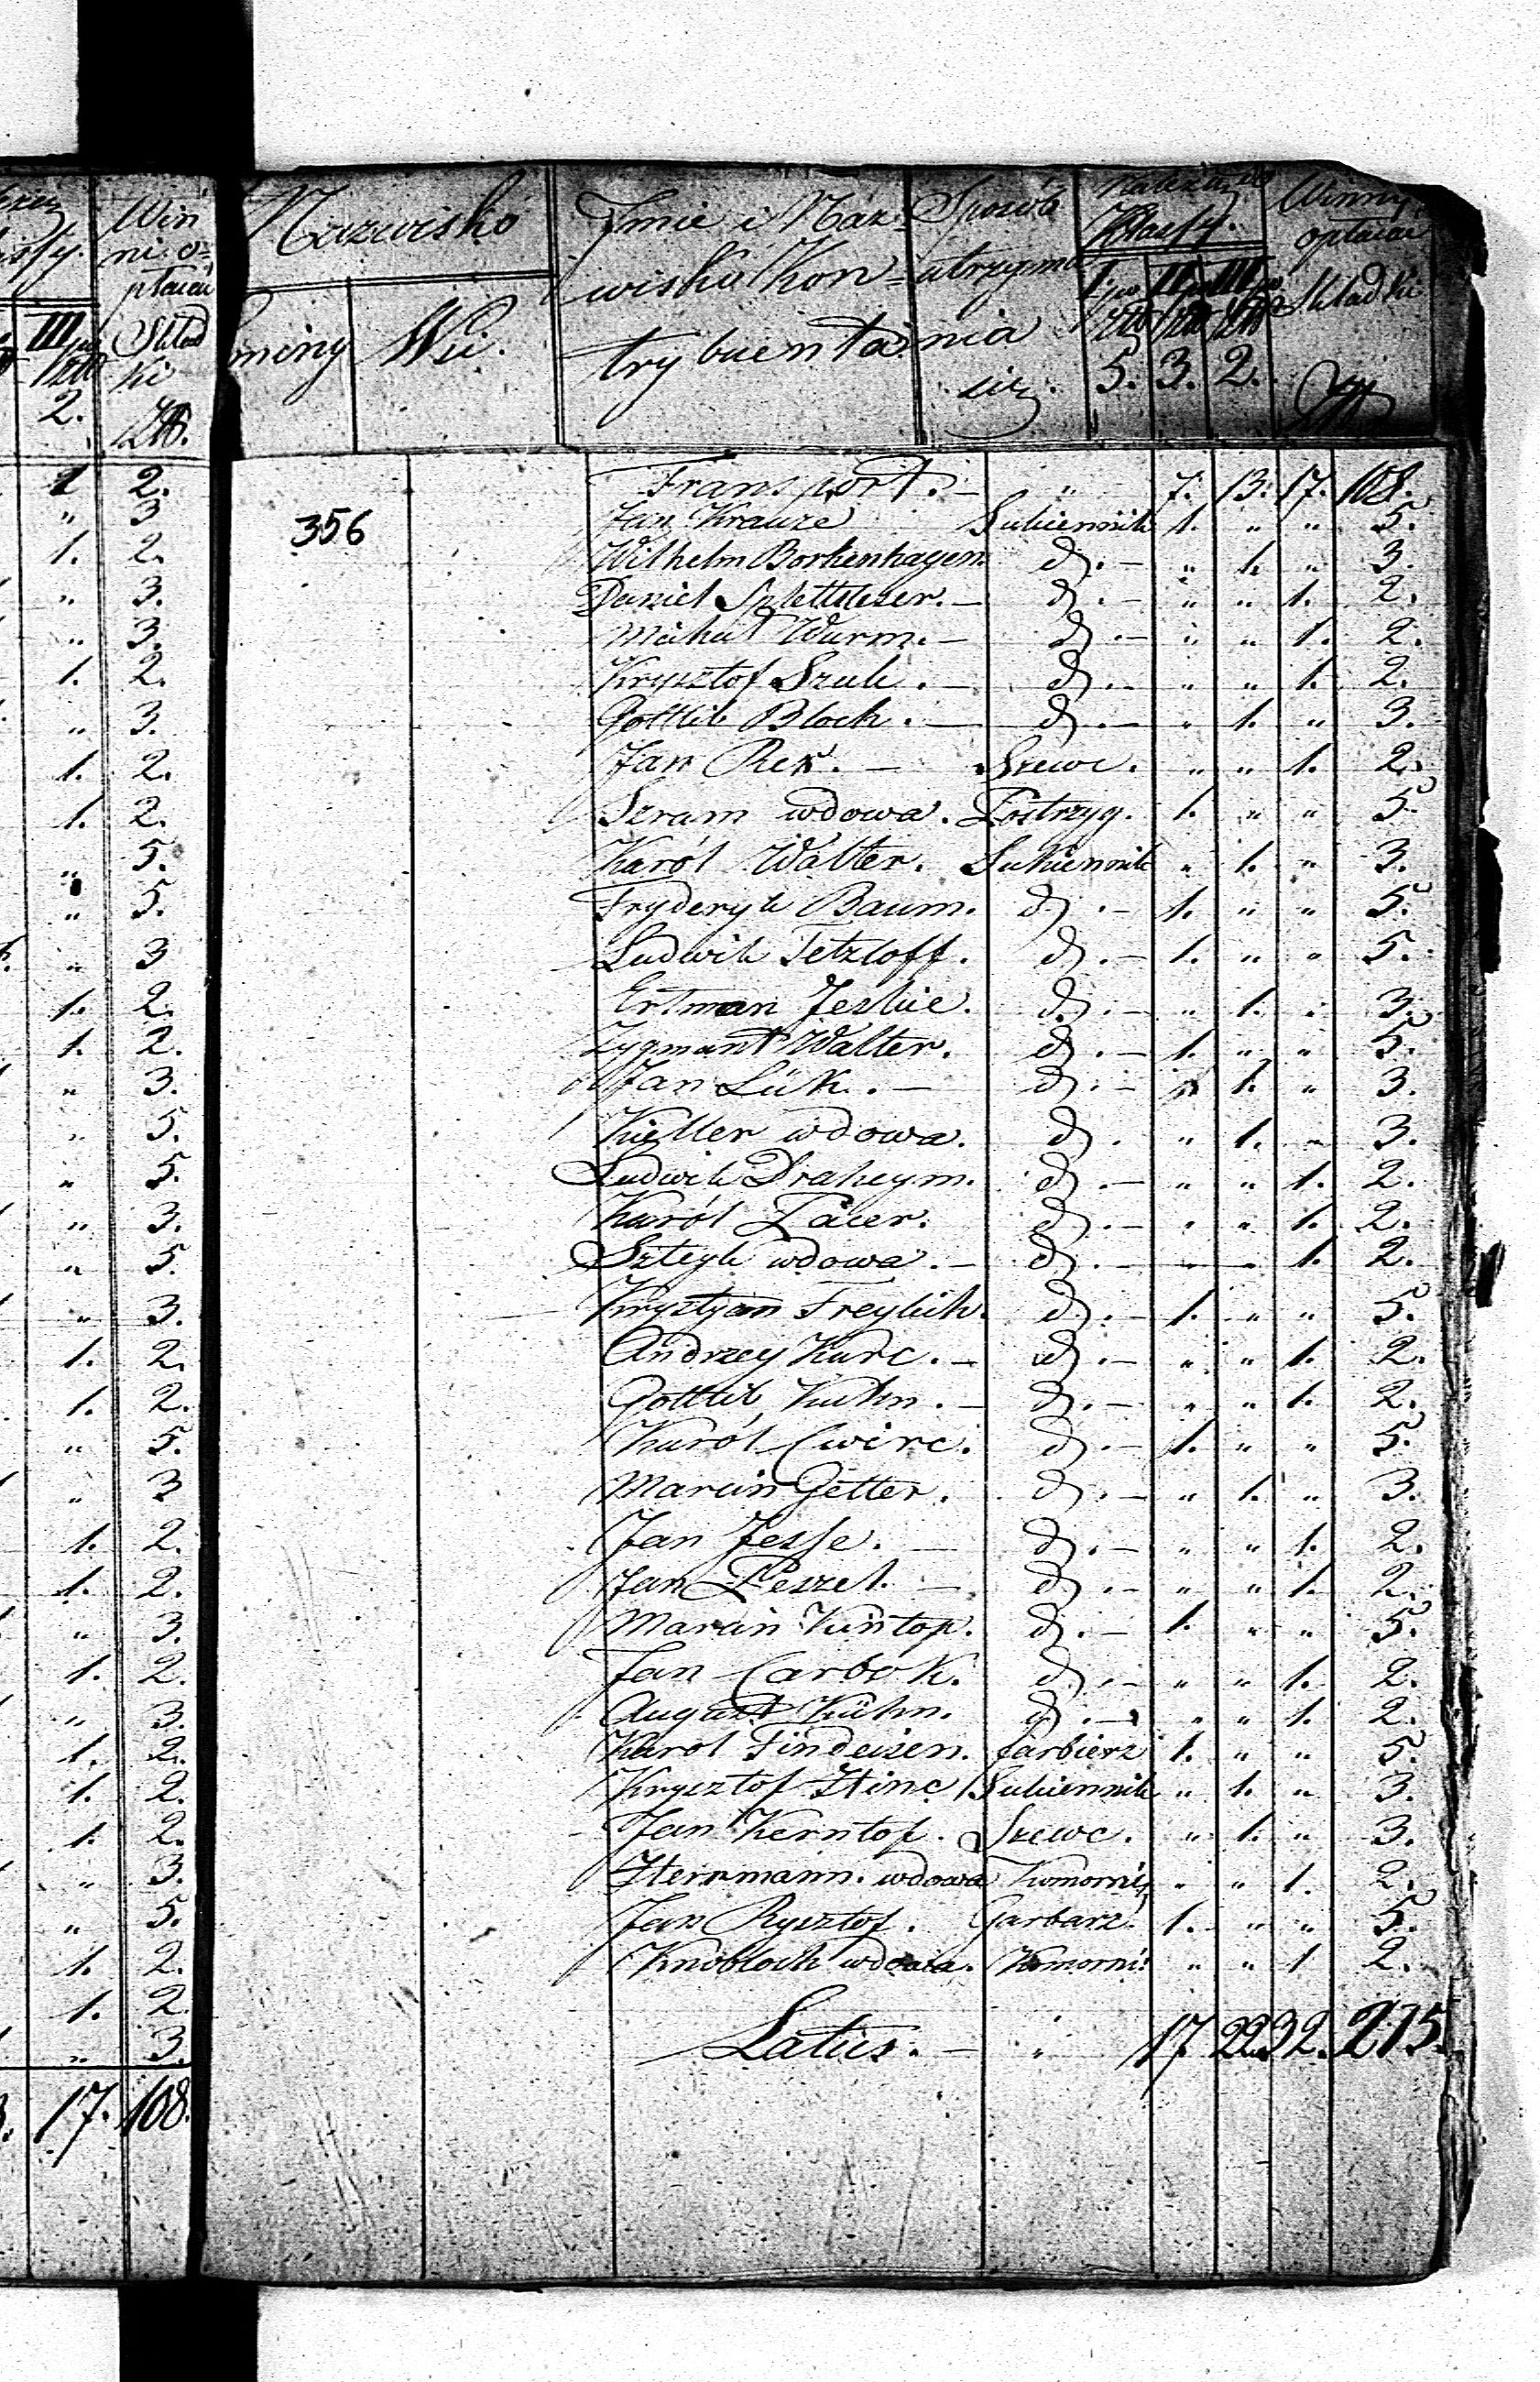 III
2.
Win
ni o=
płacać
Skład
ki
Złp.
1 2.
" 3
1. 2.
" 3.
" 3.
1. 2.
" 3.
1. 2.
1. 2.
" 5.
" 5.
" 3
1. 2.
1. 2.
" 3.
" 5.
" 5.
" 3.
" 5.
" 3.
1. 2.
1. 2.
" 5.
" 3
1. 2.
1. 2.
" 3.
1. 2.
" 3.
1. 2.
1. 2.
1. 2.
" 3.
" 5.
1. 2.
1. 2.
" 3.
17. 108.
Nazwisko
miny Wsi.
Imie i Naz=
wisko Kon=
trybuenta
Sposób
utrzyma
nia
się.
Należy do
Klassy.
I II III
5. 3. 2.
Winny
opłacać
Składki
356
Transport. — " 7. 13. 17. 108.
Jan Krauze Sukiennik 1. " " 5.
Wilhelm Borkenhagen. d. — " 1. " 3.
Daniel Splettsteser. — d. — " " 1. 2.
Michał Wurm. — d. — " " 1. 2.
Krysztof Szulc. — d. — " " 1. 2.
Gottlib Bloch. — d. — " 1. " 3.
Jan Rex. — Szewc. " " 1. 2.
Szram wdowa. Postrzyg. 1. " " 5.
Karól Walter. Sukiennik " 1. " 3.
Fryderyk Baum. d. — 1. " " 5.
Ludwik Tetzloff. d. — 1. " " 5.
Ertman Jeskie. d. — " 1. " 3.
Zygmunt Walter. d. — 1. " " 5.
Jan Lük. — d. — " 1. " 3.
Kieller wdowa. d. " 1. " 3.
Ludwik Draheym. d. — " " 1. 2.
Karól Pacer. d. — " " 1. 2.
Szteyk wdowa. — d. — " " 1. 2.
Krystyan Freylich. d. — 1. " " 5.
Andrzey Kurc. — d. — " " 1. 2.
Gottlib Kuhn. — d. — " " 1. 2.
Karól Cwirc. d. — 1. " " 5.
Marcin Getter. d. — " 1. " 3.
Jan Jesse. — d. — " " 1. 2.
Jan Peszel. — d. — " " 1. 2.
Marcin Küntop. d. — 1. " " 5.
Jan Carbok. d. — " " 1. 2.
August Kühn. d. — " " 1. 2.
Karol Findeisen. farbierz 1. " " 5.
Krysztof Hinc Sukiennik " 1. " 3.
Jan Kerntop. Szewc. " 1. " 3.
Herrmann. wdowa Komorni " " 1. 2.
Jan Rysztof. Garbarz. 1. " " 5.
Knobloch wdowa. Komorni " " 1 2.
Latus. — " 17 22. 32. 215.